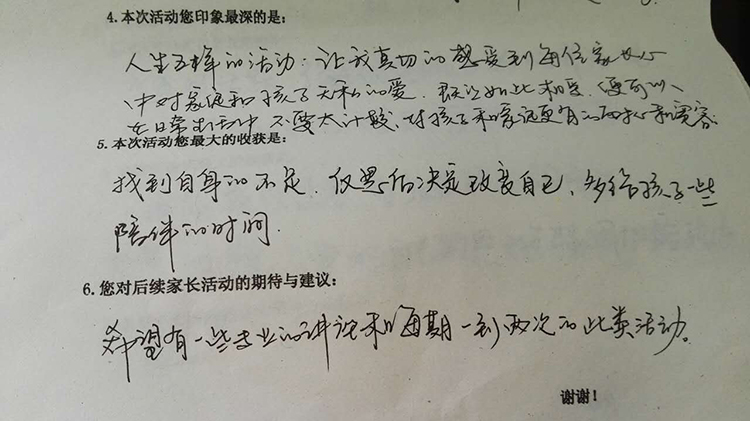 4. 本次活动您印象最深的是:
人生五样的活动:让我真切的感受到每位家长心
中对家庭和孩子无私的爱.既然如此相爱.便可以
在日常生活中不要太计较、对孩子和家庭更有耐心和宽容
5. 本次活动您最大的收获是:
找到自身的不足.仅思后决定改变自己、多给孩子一些
陪伴的时间.
6. 您对后续家长活动的期待与建议:
希望有一些专业的讲说和每期一到两次的此类活动。
谢谢!